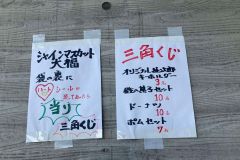 シャインマスカット
大福
袋の裏に
ハート シールが
貼ってあったら
当り
三角くじ
三角くじ
オリジナル
キーホルダー
3名
菓子セット
10名
ドーナツ
10名
ポムセット
7名